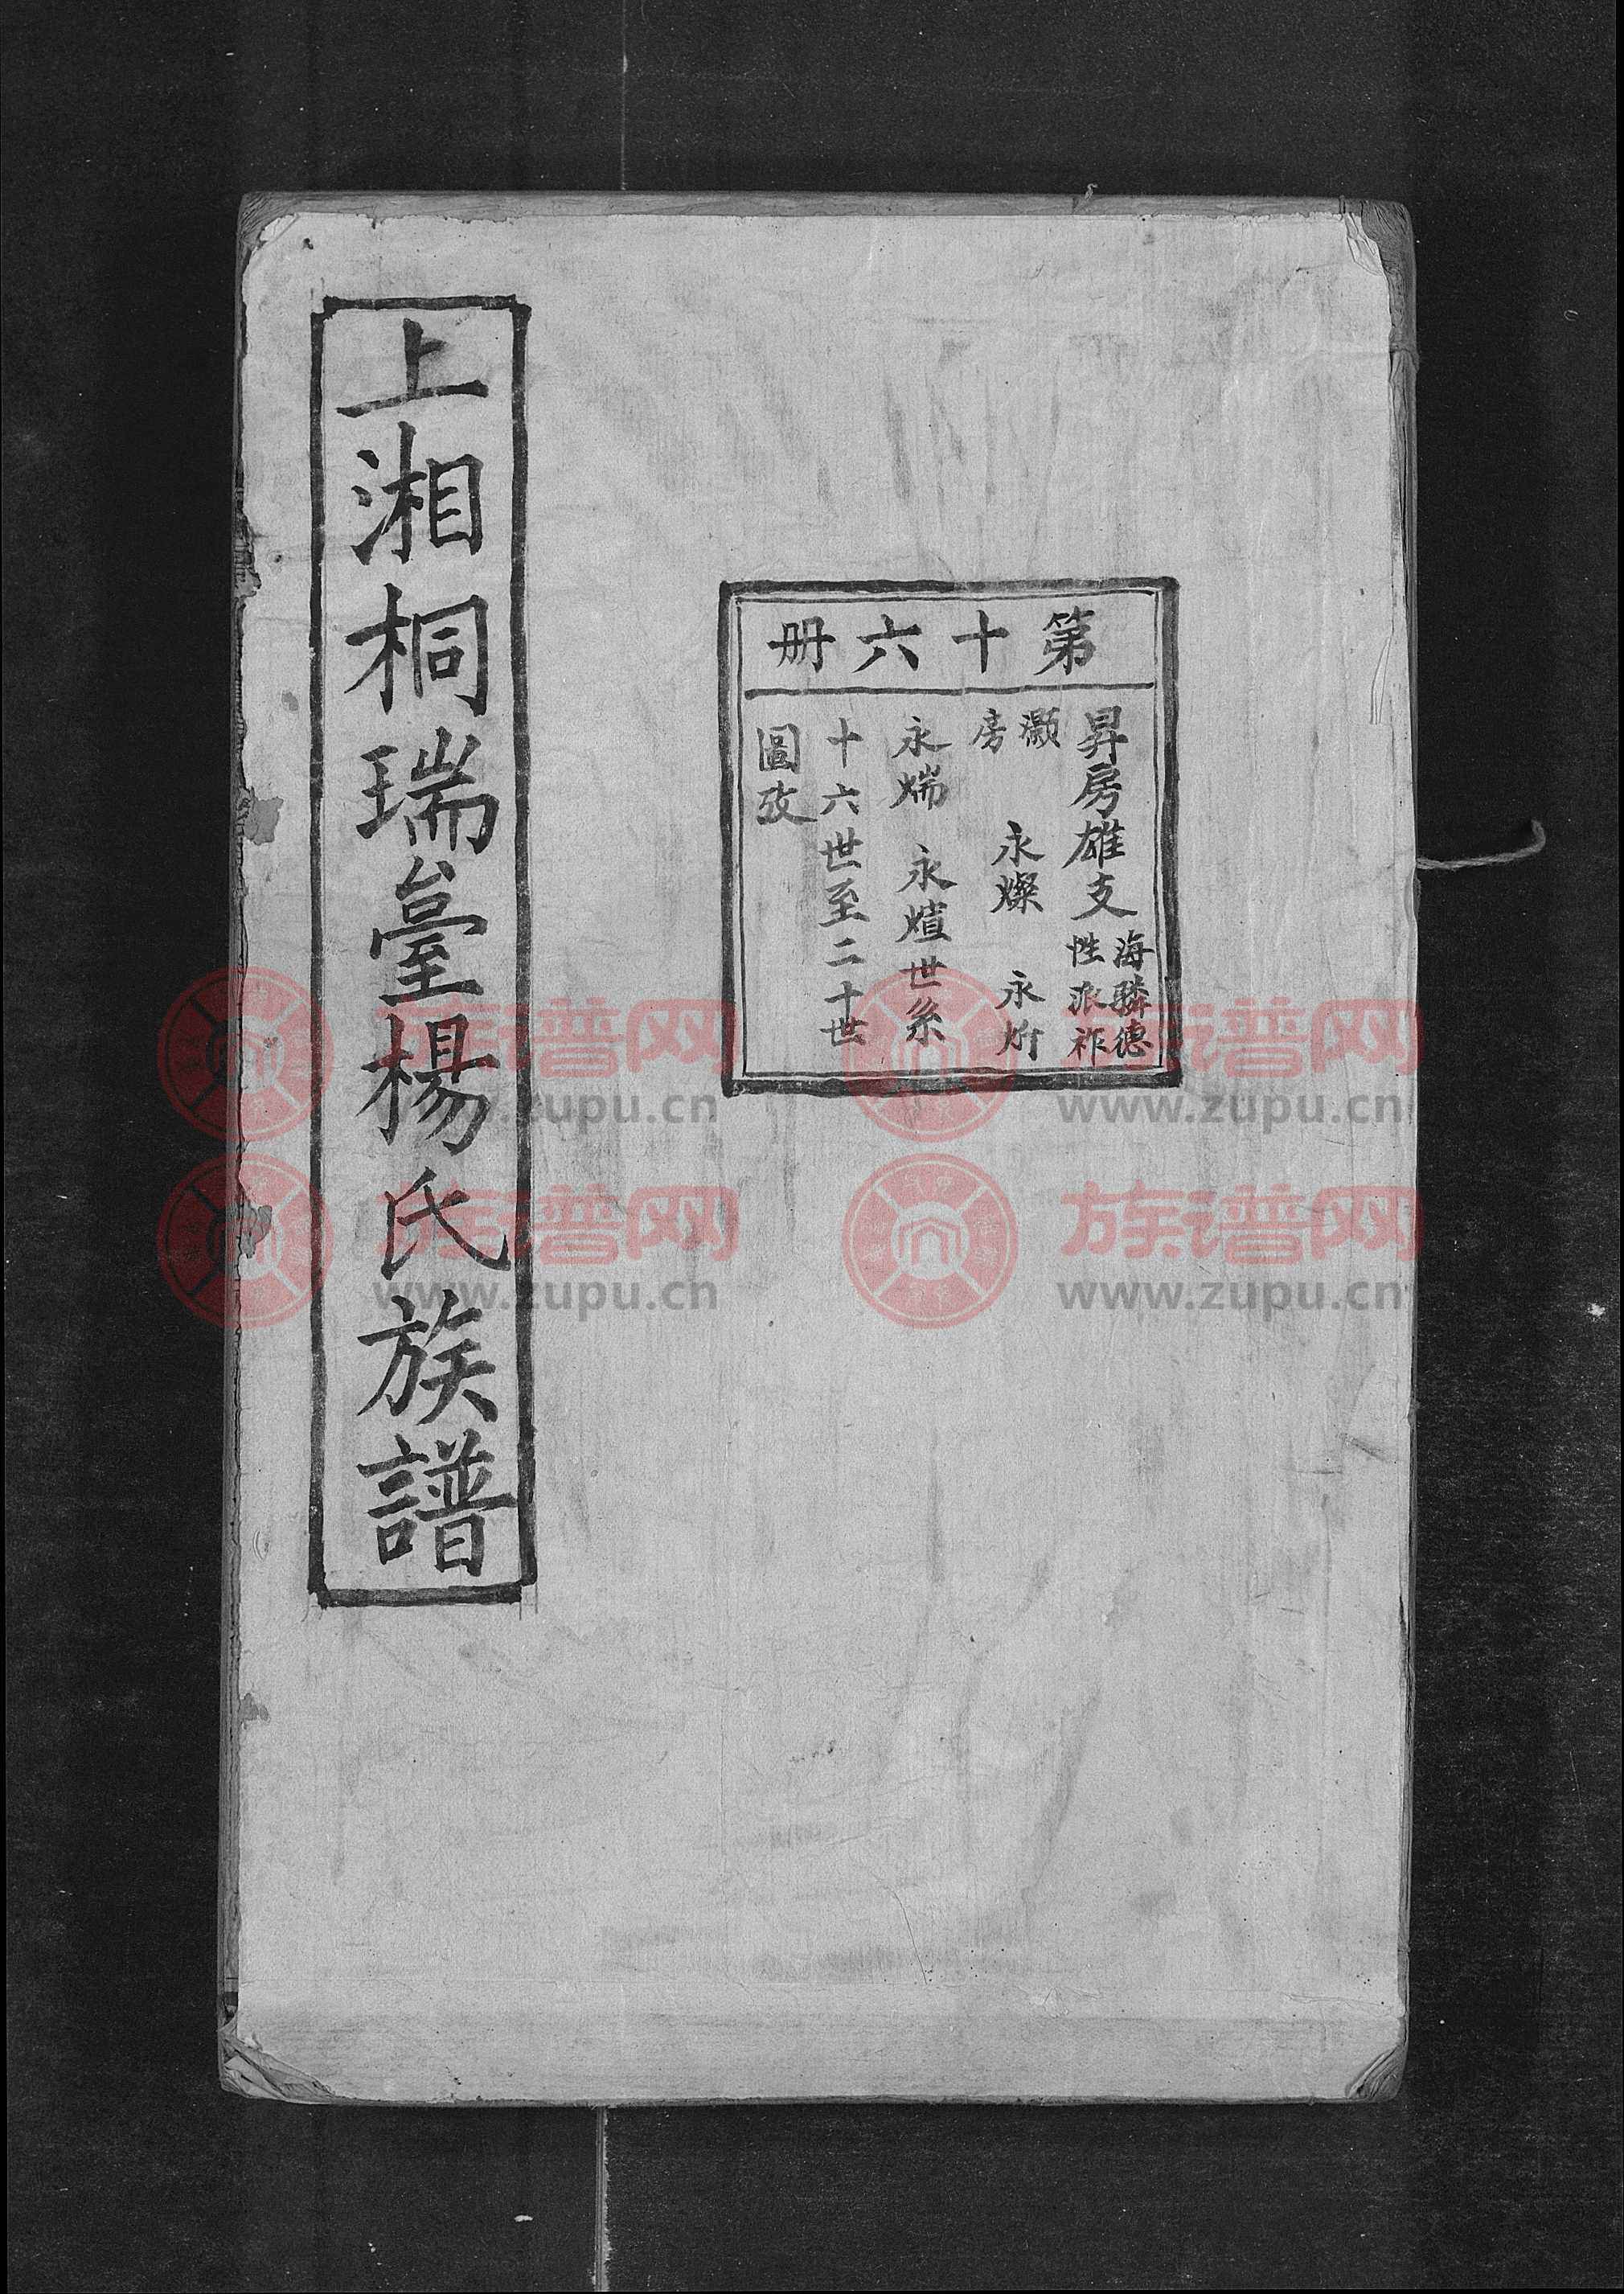 上湘桐瑞臺楊氏族譜
第十六册
昇房雄支
海驎德
性派祚
灝
房
永燦 永炘
永煓 永煊世系
十六世至二十世
圖攷
族谱网
www.zupu.cn
族谱网
www.zupu.cn
族谱网
www.zupu.cn
族谱网
www.zupu.cn